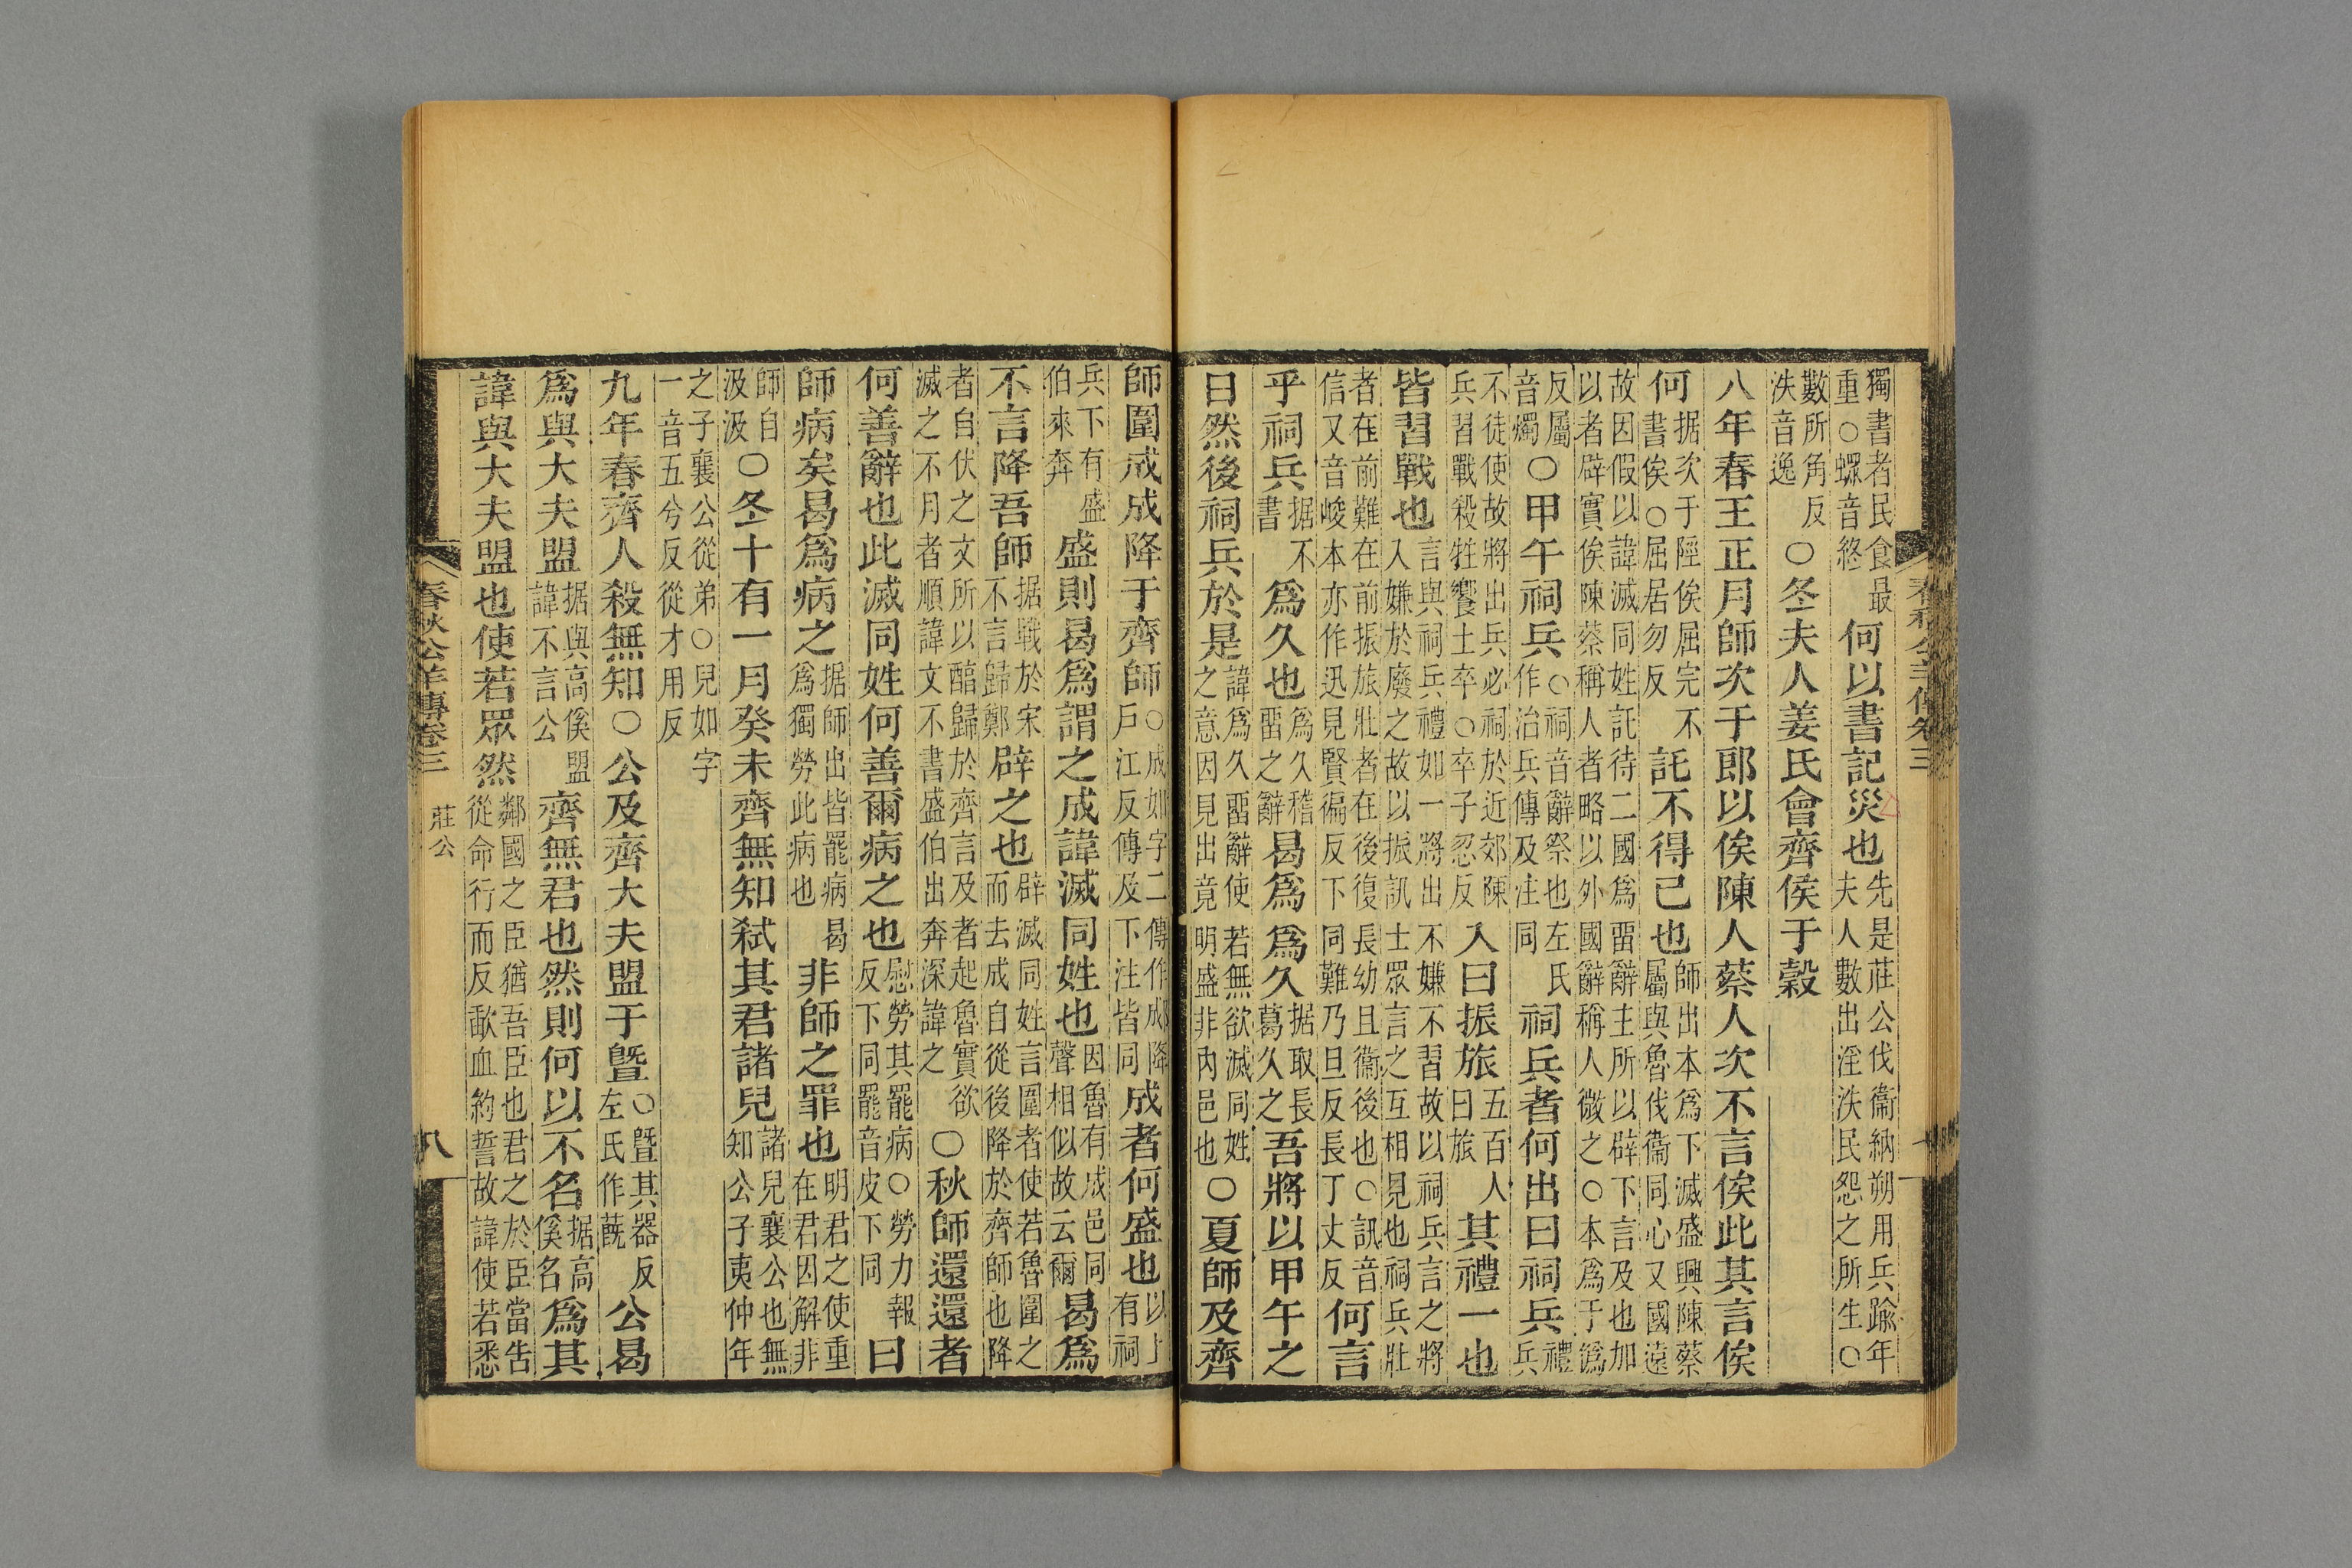 獨書者民食最重○螺音終何以書記災也先是莊公伐衞納朔用兵踰年夫人數出淫泆民怨之所生○
數所角反泆音逸○冬夫人姜氏會齊侯于穀
八年春王正月師次于郎以俟陳人蔡人次不言俟此其言俟
何据次于陘俟屈完不書俟○屈居勿反託不得已也師出本爲下滅盛興陳蔡屬與魯伐衞同心又國遠
故因假以諱滅同姓託待二國爲畱辭主所以辟下言及也加以者辟實俟陳蔡稱人者略以外國辭稱人微之○本爲于僞
反屬音燭○甲午祠兵○祠音辭祭也左氏作治兵傳及注同祠兵者何出曰祠兵禮兵
不徒使故將出兵必祠於近郊陳兵習戰殺牲饗士卒○卒子忍反入曰振旅五百人曰旅其禮一也
皆習戰也言與祠兵禮如一將出不嫌不習故以祠兵言之將入嫌於廢之故以振訊士眾言之互相見也祠兵壯
者在前難在前振旅壯者在後復長幼且衞後也○訊音信又音峻本亦作迅見賢徧反下同難乃旦反長丁丈反何言
乎祠兵据不書爲久也爲久稽畱之辭曷爲爲久据取長葛久之吾將以甲午之
日然後祠兵於是諱爲久畱辭使若無欲滅同姓之意因見出竟明盛非內邑也○夏師及齊
師圍成成降于齊師○成如字二傳作郕降戶江反傳及下注皆同成者何盛也以上有祠
兵下有盛伯來奔盛則曷爲謂之成諱滅同姓也因魯有成邑同聲相似故云爾曷爲
不言降吾師据戰於宋不言歸鄭辟之也辟滅同姓言圍者使若魯圍之而去成自從後降於齊師也降
者自伏之文所以醕歸於齊言及者起魯實欲滅之不月者順諱文不書盛伯出奔深諱之○秋師還還者
何善辭也此滅同姓何善爾病之也慰勞其罷病○勞力報反下同罷音皮下同曰
師病矣曷爲病之据師出皆罷病曷爲獨勞此病也非師之罪也明君之使重在君因解非
師自汲汲○冬十有一月癸未齊無知弒其君諸兒諸兒襄公也無知公子夷仲年
之子襄公從弟○兒如字一音五兮反從才用反
九年春齊人殺無知○公及齊大夫盟于暨○暨其器反左氏作蔇公曷
爲與大夫盟据與高傒盟諱不言公齊無君也然則何以不名据高傒名爲其
諱與大夫盟也使若眾然鄰國之臣猶吾臣也君之於臣當告從命行而反歃血約誓故諱使若悉
春秋公羊傳卷三 莊公 八